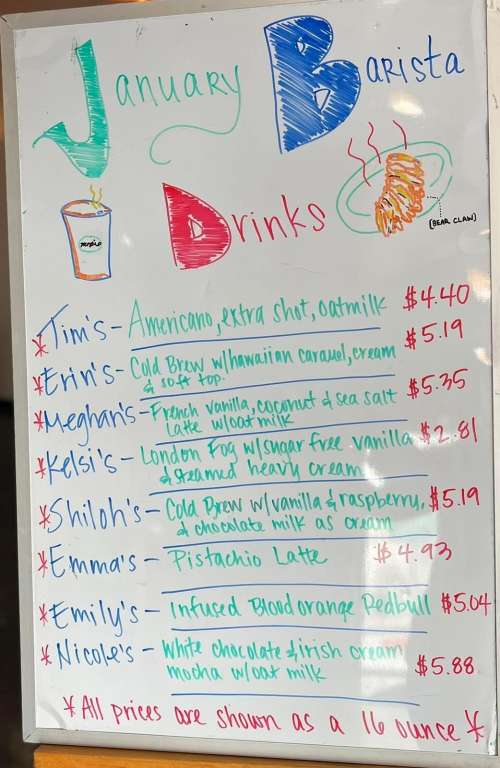 January Barista
Drinks
(BEAR CLAW)
*Tim's - Americano, extra shot, oatmilk $4.40
*Erin's - Cold Brew w/hawaiian caramel, cream $5.19
& soft top.
*Meghan's - French vanilla, coconut & sea salt $5.35
Latte w/oat milk
*Kelsi's - London Fog w/sugar free vanilla $2.81
& steamed heavy cream
*Shiloh's - Cold Brew w/vanilla & raspberry, $5.19
& chocolate milk as cream
*Emma's - Pistachio Latte $4.93
*Emily's - Infused Bloodorange Redbull $5.04
*Nicole's - White chocolate & irish cream
mocha w/oat milk $5.88
*All prices are shown as a 16 ounce*